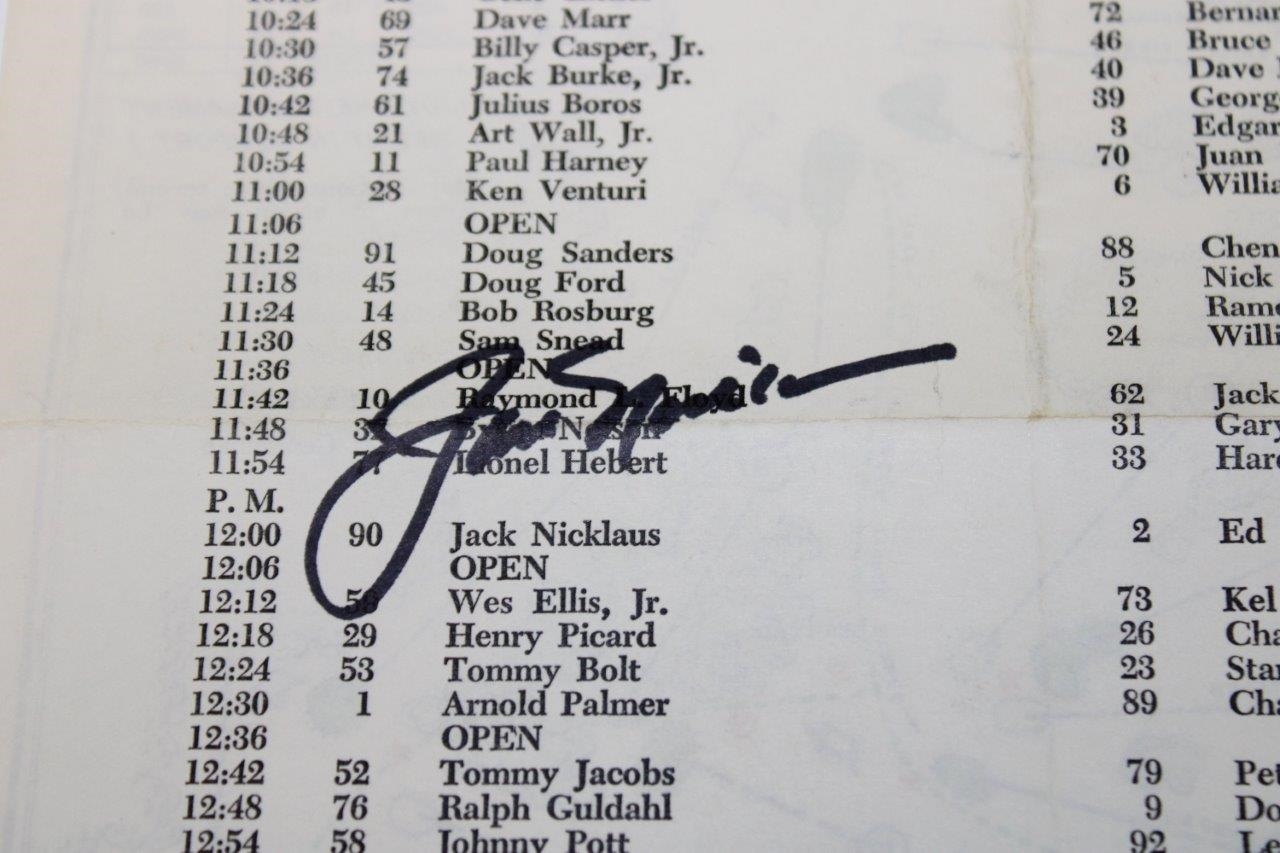 10:24 69 Dave Marr 72
10:30 57 Billy Casper, Jr. 46 Bruce
10:36 74 Jack Burke, Jr. 40 Dave
10:42 61 Julius Boros 39
10:48 21 Art Wall, Jr. 3
10:54 11 Paul Harney 70 Juan
11:00 28 Ken Venturi 6
11:06 OPEN
11:12 91 Doug Sanders 88
11:18 45 Doug Ford 5 Nick
11:24 14 Bob Rosburg 12
11:30 48 Sam Snead 24
11:36 OPEN
11:42 10 Raymond L. Floyd 62 Jack
11:48 Byron Nelson 31 Gary
11:54 77 Lionel Hebert 33
P. M.
12:00 90 Jack Nicklaus 2 Ed
12:06 OPEN
12:12 Wes Ellis, Jr. 73 Kel
12:18 29 Henry Picard 26
12:24 53 Tommy Bolt 23
12:30 1 Arnold Palmer 89
12:36 OPEN
12:42 52 Tommy Jacobs 79
12:48 76 Ralph Guldahl 9
12:54 58 Johnny Pott 92